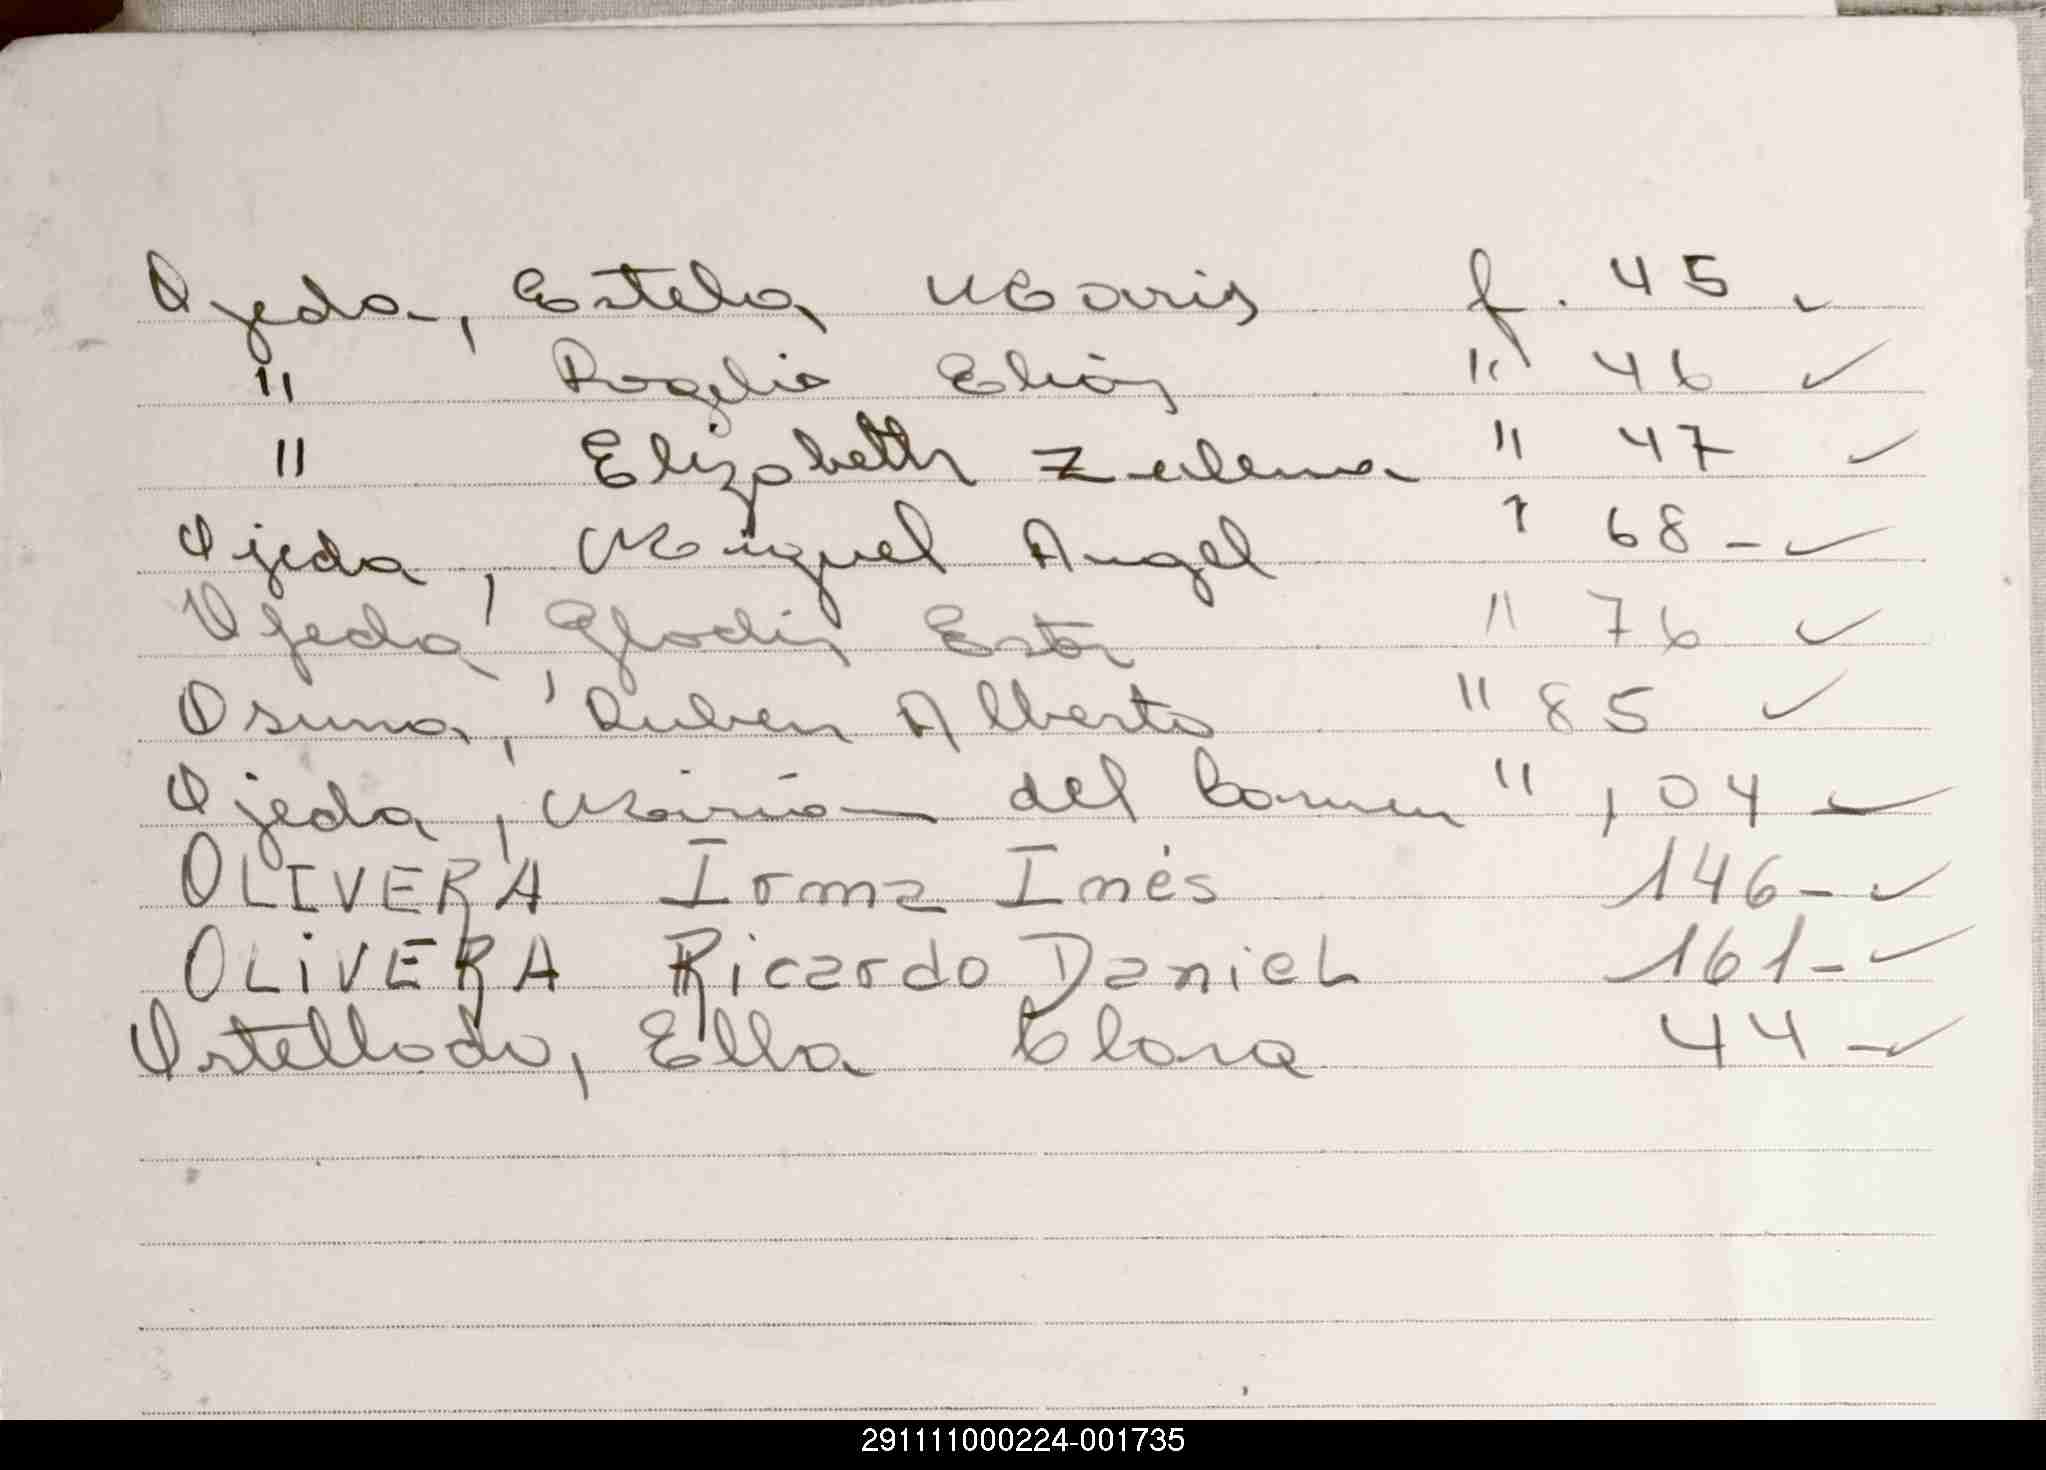 Ojeda, Estela Maris f. 45
" Rogelio Elías " 46
" Elizabeth Zulema " 47
Ojeda, Miguel Angel " 68-
Ojeda, Gladis Ester " 76
Osuna, Ruben Alberto " 85
Ojeda, Miriam del Carmen " 104
OLIVERA Irma Inés 146-
OLIVERA Ricardo Daniel 161-
Ella Clara 44-
291111000224-001735